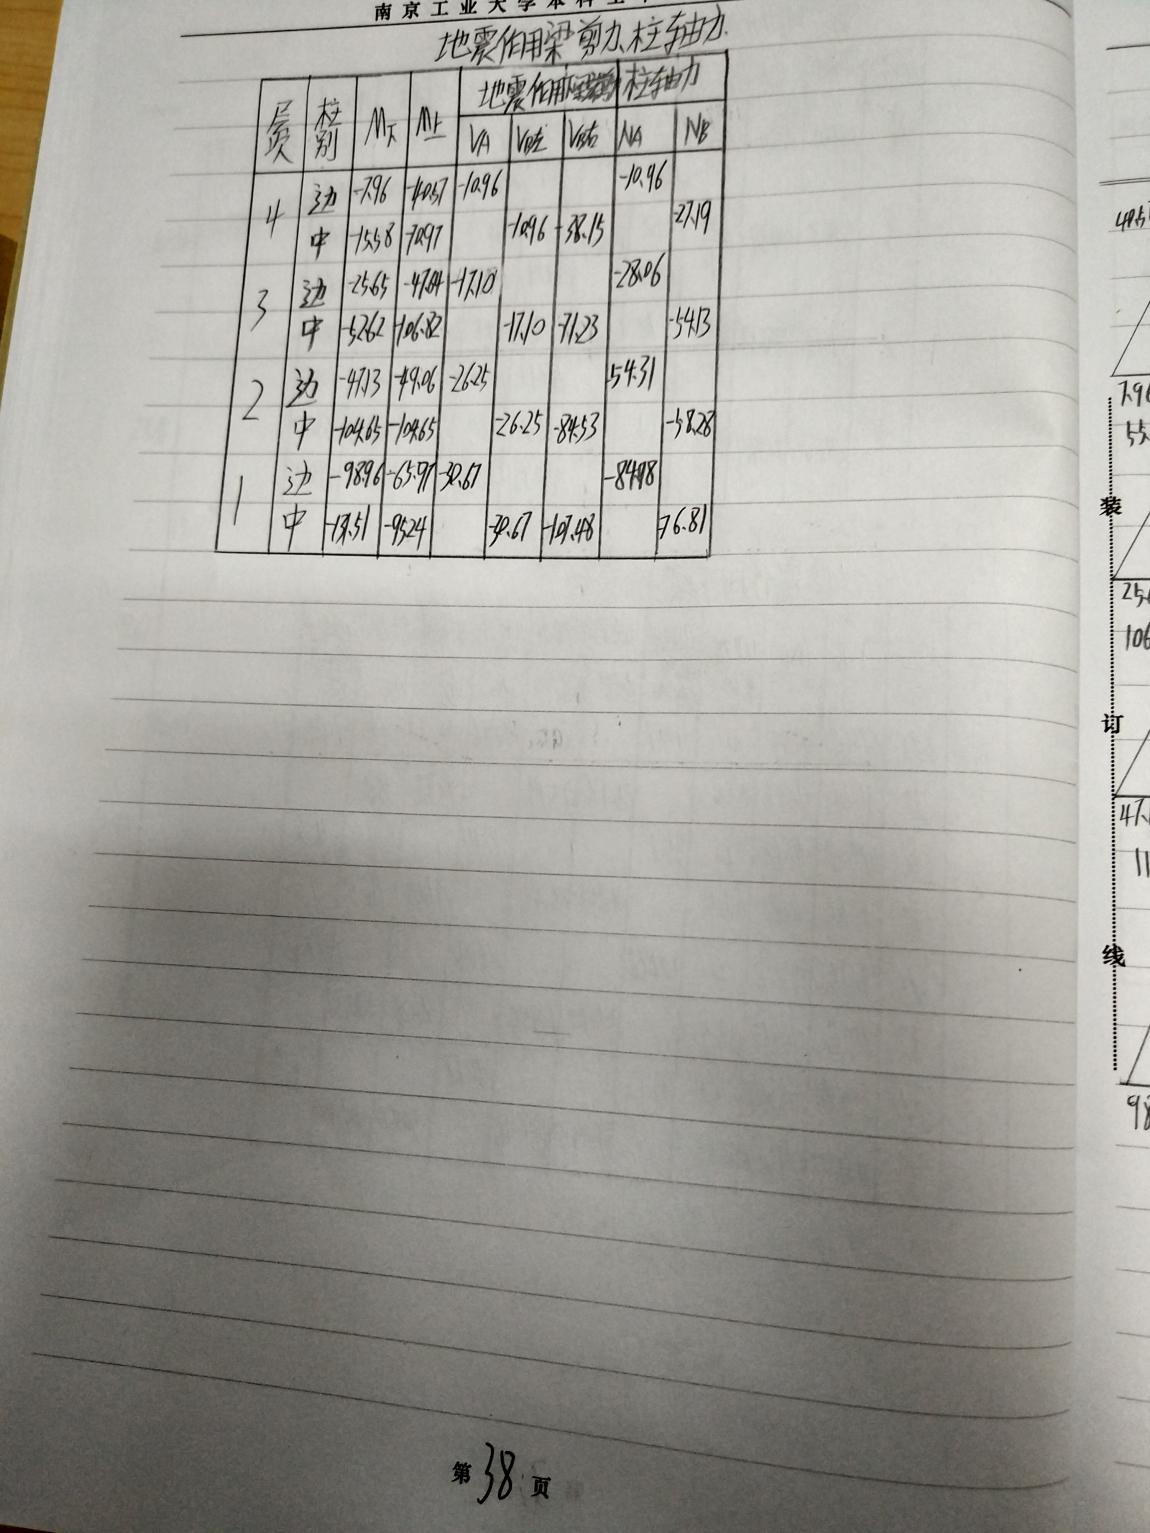 南京工业大学本科生
地震作用梁剪力、柱轴力
层次 柱别 M下 M上 地震作用 柱轴力
VA VB左 VB右 NA NB
4 边 -7.96 -40.57 -10.96 -10.96
中 -15.58 -70.97 -10.96 -38.15 -27.19
3 边 -25.65 -47.84 -17.10 -28.06
中 -52.62 -106.82 -17.10 -71.23 -54.13
2 边 -47.13 -49.06 -26.25 -54.31
中 -104.65 -104.65 -26.25 -84.53 -58.28
1 边 -98.96 -65.97 -30.67 -84.98
中 -95.24 -30.67 -107.48 -76.81
第38页
装
订
线
7.96
106
98